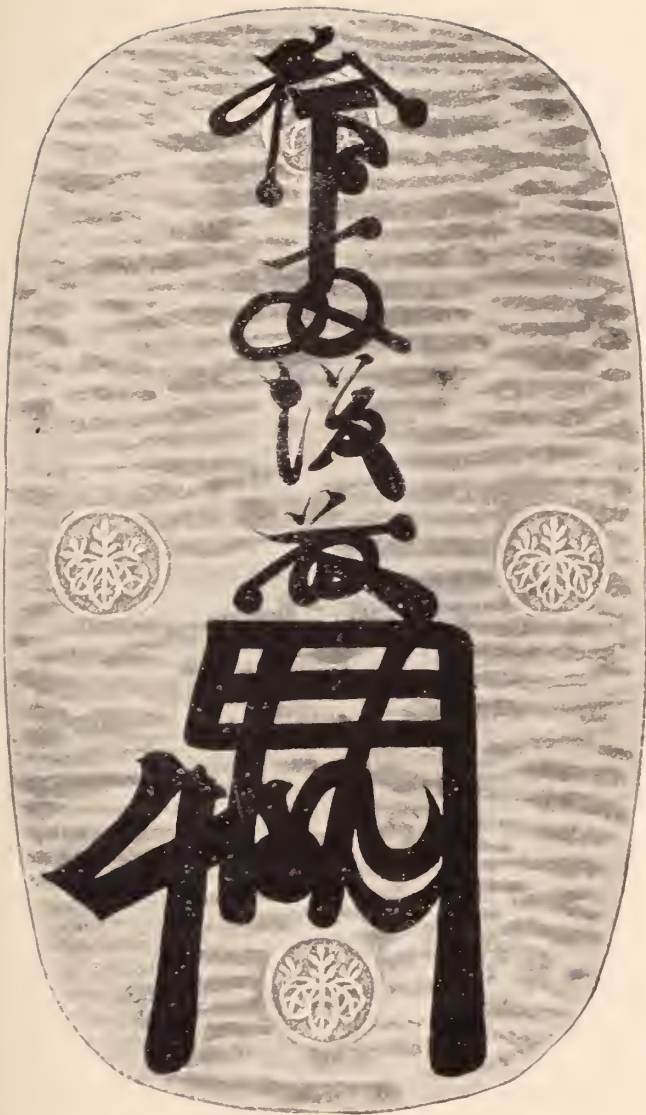 拾両後藤